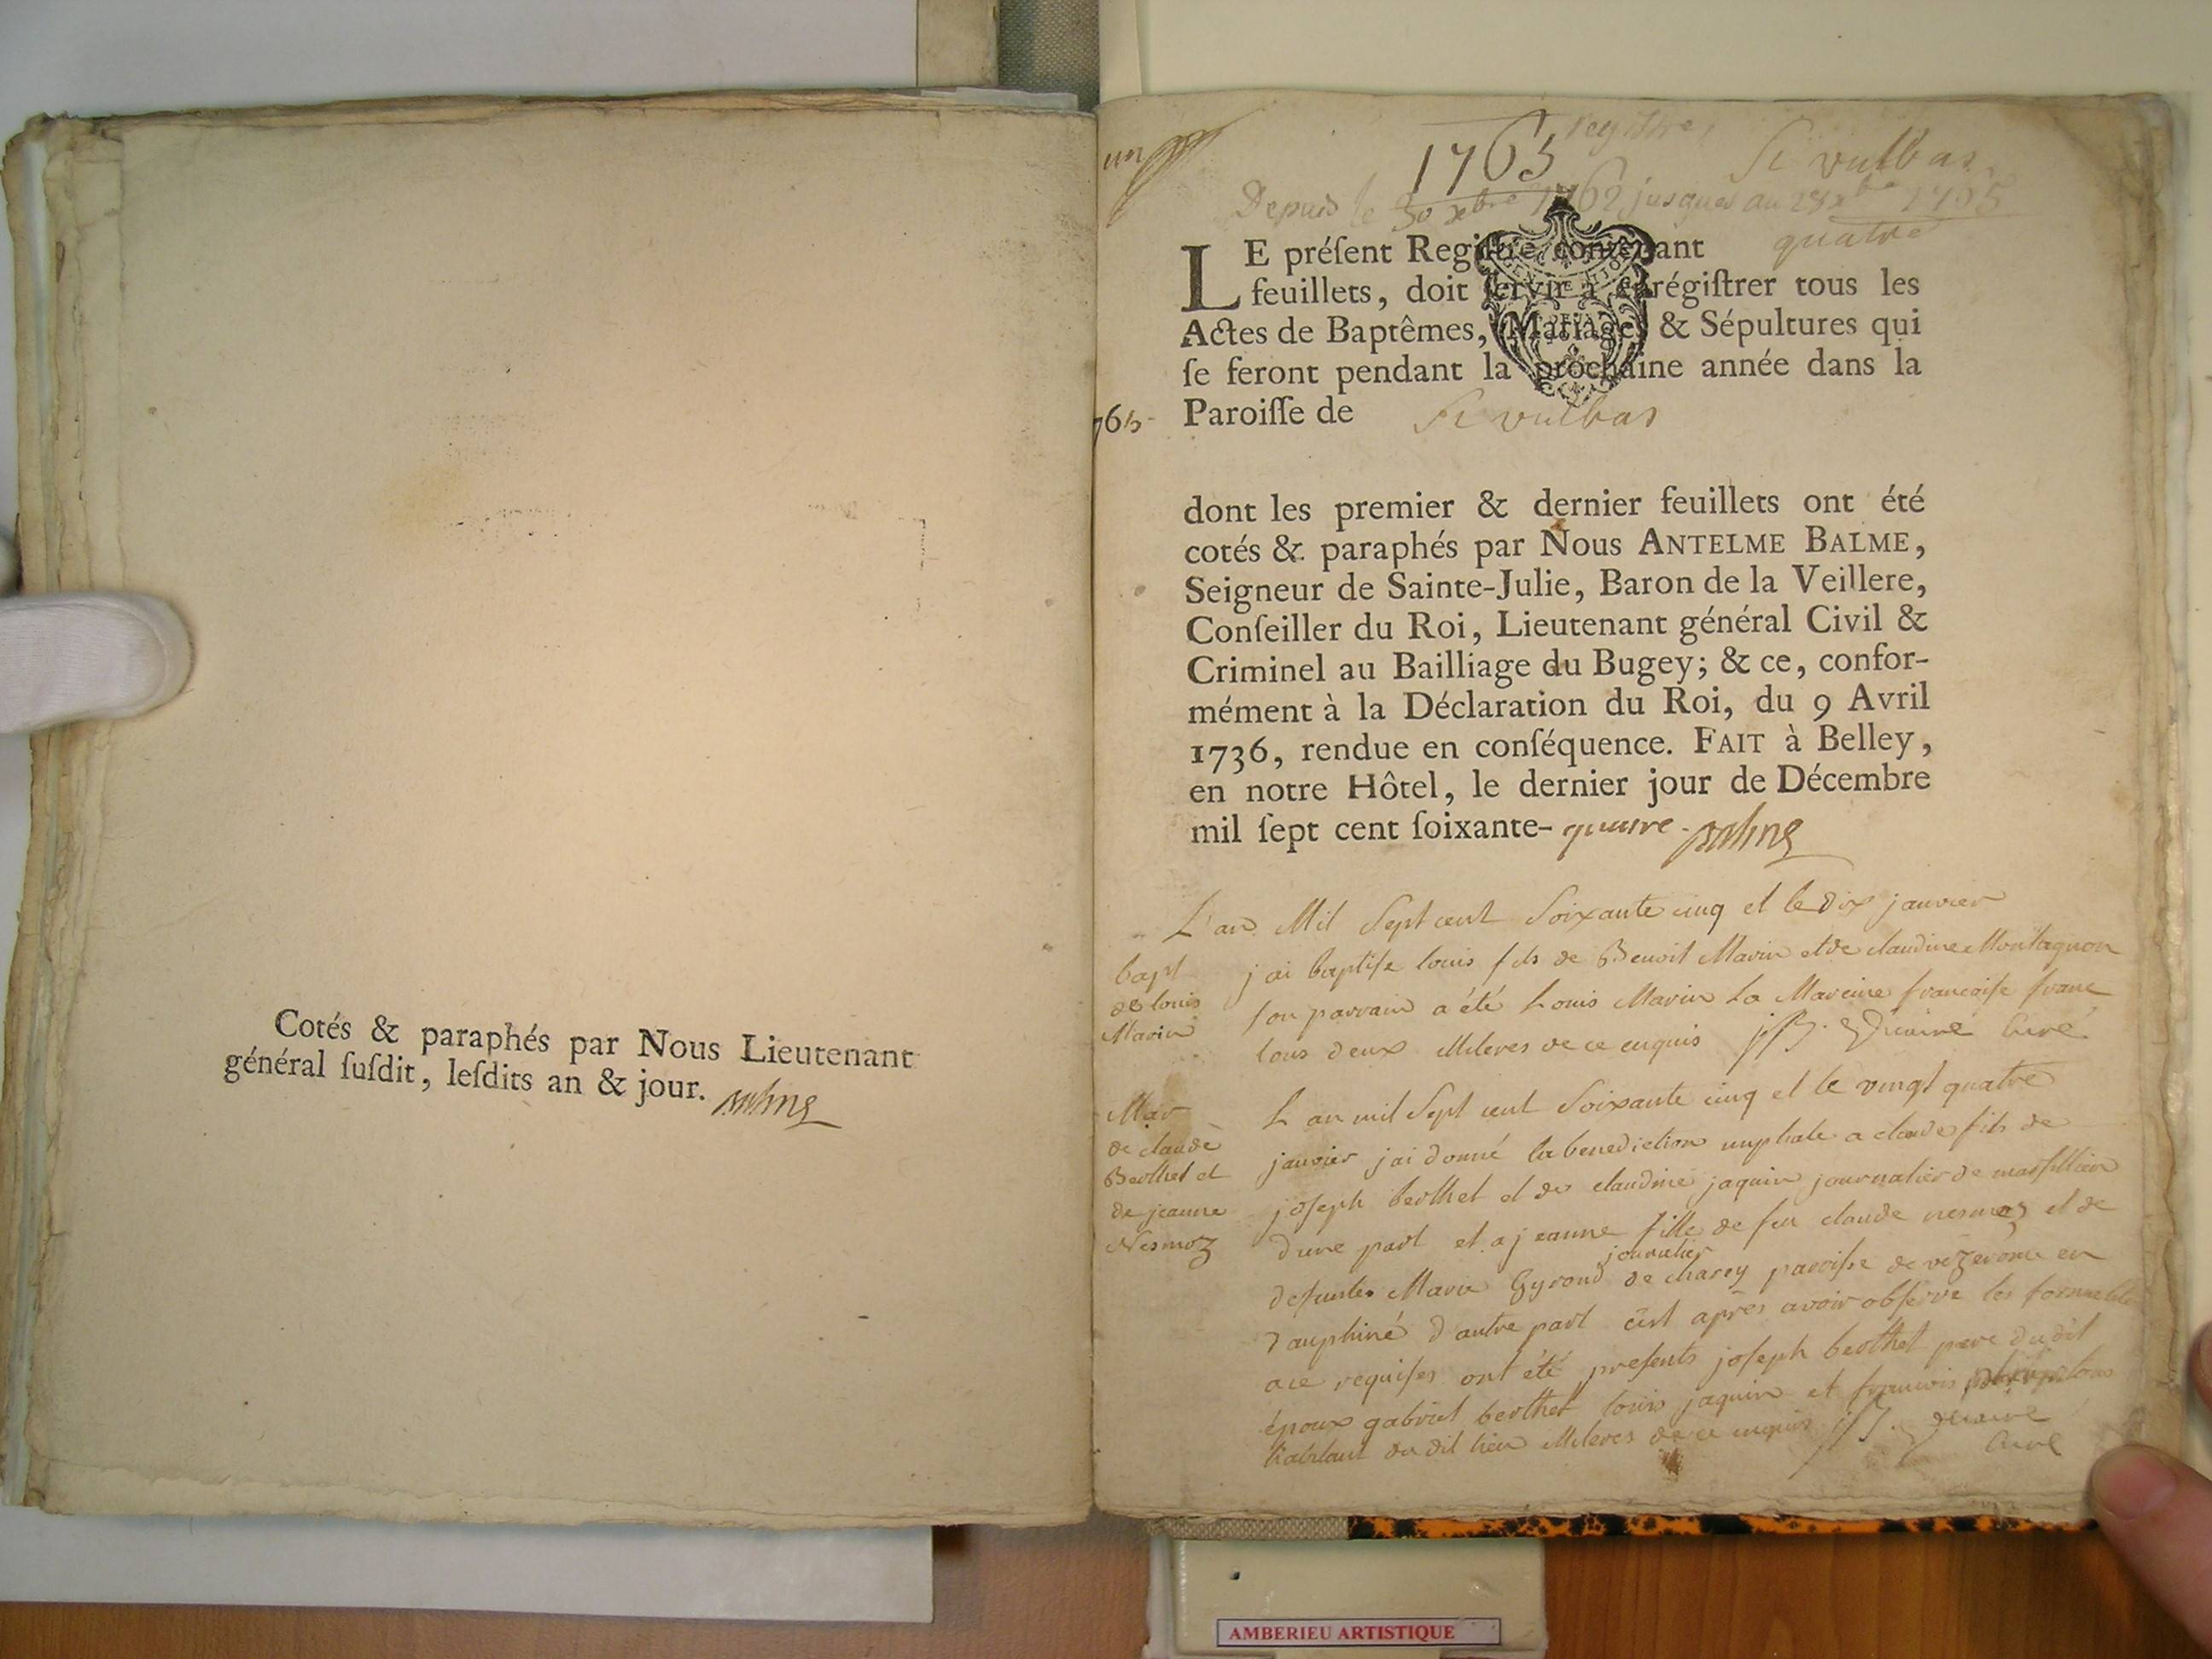 Cotés & paraphés par Nous Lieutenant
général ſuſdit, leſdits an & jour.
un
1765
registre
St vulbas
Depuis le 30 xbre 1762 jusques au 28 xbre 1765
quatre
LE préſent Regiſtre contenant
feuillets, doit ſervir à enrégiſtrer tous les
Actes de Baptêmes, Mariages & Sépultures qui
ſe feront pendant la prochaine année dans la
Paroiſſe de St vulbas
dont les premier & dernier feuillets ont été
cotés & paraphés par Nous ANTELME BALME,
Seigneur de Sainte-Julie, Baron de la Veillere,
Conſeiller du Roi, Lieutenant général Civil &
Criminel au Bailliage du Bugey; & ce, confor-
mément à la Déclaration du Roi, du 9 Avril
1736, rendue en conſéquence. FAIT à Belley,
en notre Hôtel, le dernier jour de Décembre
mil ſept cent ſoixante-quatre. Balme
L'an Mil Sept cent Soixante cinq et le dix janvier
bapt
de louis
Marin
j ai baptiſe louis fils de Benoit Marin et de claudine Montagnon
ſon parrain a été Louis Marin La Mareine francoiſe franc
tous deux illiteres de ce enquis curé
Mar
de claude
Berthet et
de jeanne
Nesmoz
L an mil Sept cent Soixante cinq et le vingt quatre
janvier jai donné la benediction nuptiale a claude fils de
joſeph berthet et de claudine jaquin journalier de marſillieu
dune part et a jeanne fille de feu claude nesmoz et de
journalier
defunte Marie Gyroud de charey paroiſse de vezeronce en
Dauphiné d'autre part c'est après avoir obſervé les formalités
ace requiſes ont été preſents joſeph berthet pere dudit
époux gabriel berthet louis jaquin et francois tous
habitant du dit lieu illiteres de ce enquis
curé
AMBERIEU ARTISTIQUE